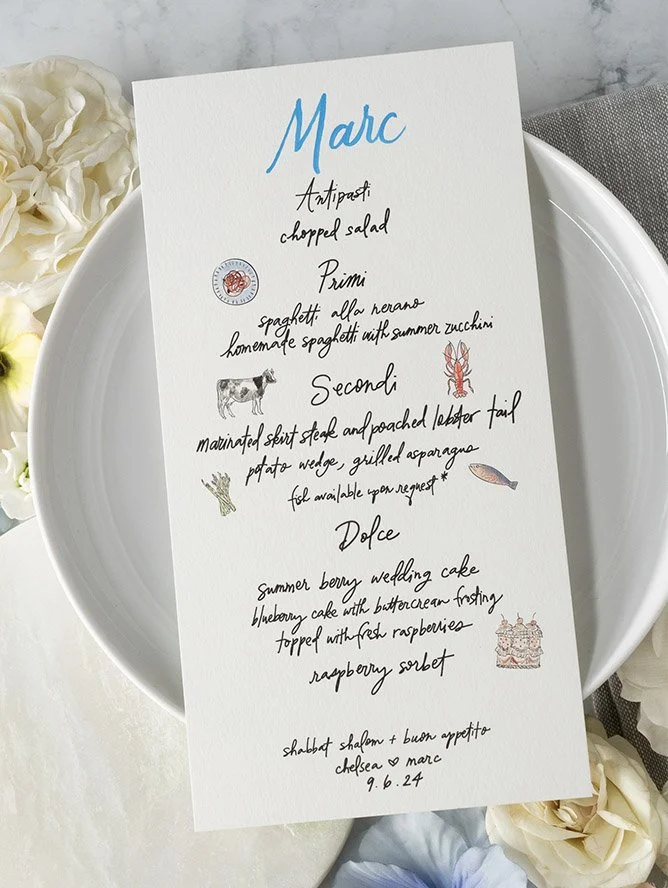 Marc
Antipasti
chopped salad
Primi
spaghetti alla nerano
homemade spaghetti with summer zucchini
Secondi
marinated skirt steak and poached lobster tail
potato wedge, grilled asparagus
fish available upon request*
Dolce
summer berry wedding cake
blueberry cake with buttercream frosting
topped with fresh raspberries
raspberry sorbet
shabbat shalom + buon appetito
chelsea ♡ marc
9.6.24